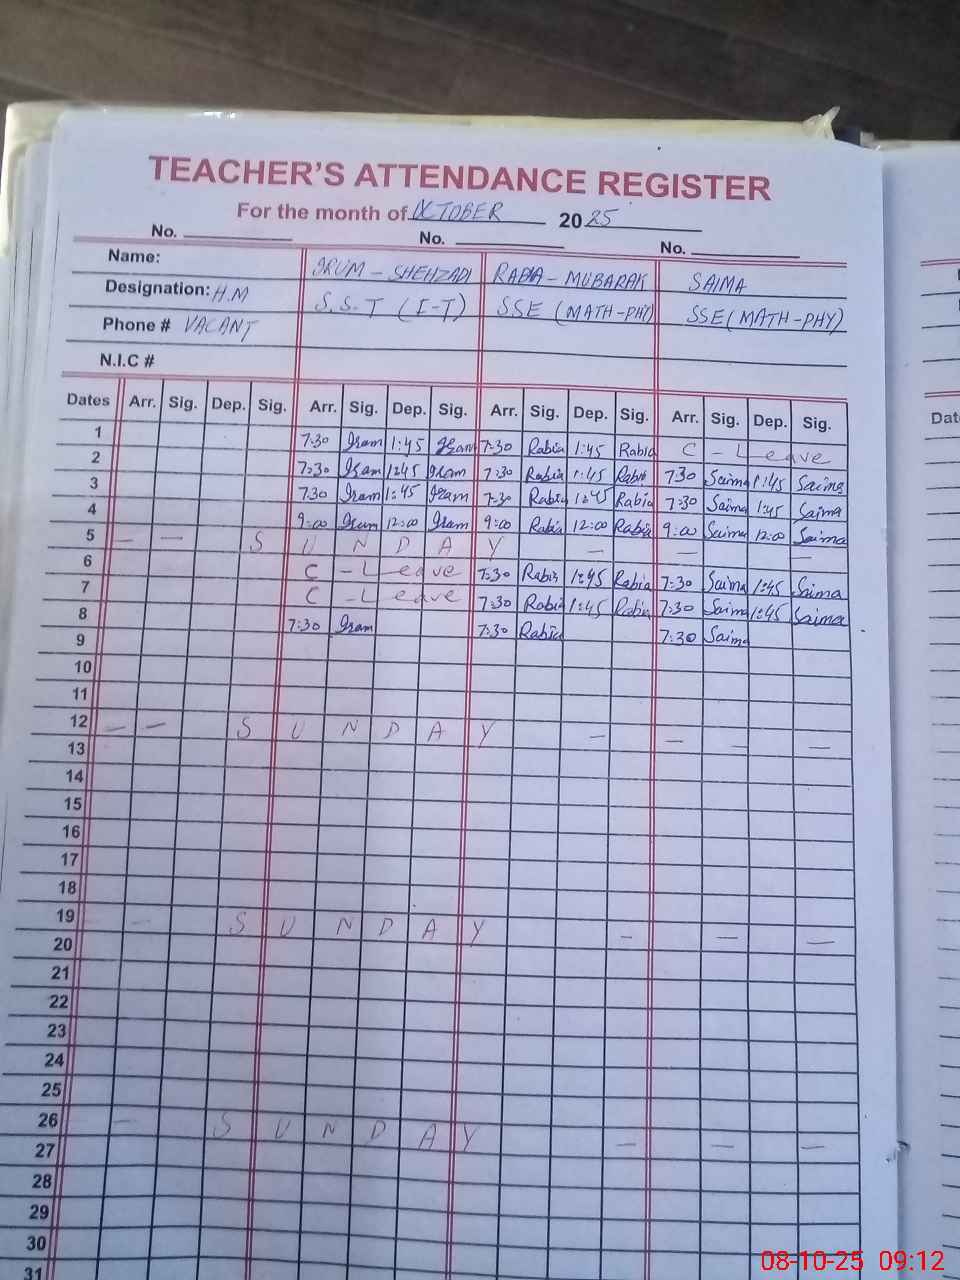 TEACHER'S ATTENDANCE REGISTER
For the month of OCTOBER 2025
No. No. No.
Name: IRUM - SHEHZADI RABIA - MUBARAK SAIMA
Designation: H.M S.S.T (I-T) SSE (MATH-PHY) SSE (MATH-PHY)
Phone # VACANT
N.I.C #
Dates Arr. Sig. Dep. Sig. Arr. Sig. Dep. Sig. Arr. Sig. Dep. Sig. Arr. Sig. Dep. Sig.
1 7:30 Iram 1:45 Iram 7:30 Rabia 1:45 Rabia C - Leave
2 7:30 Iram 1:45 Iram 7:30 Rabia 1:45 Rabia 7:30 Saima 1:45 Saima
3 7:30 Iram 1:45 Iram 7:30 Rabia 1:45 Rabia 7:30 Saima 1:45 Saima
4 9:00 Iram 12:00 Iram 9:00 Rabia 12:00 Rabia 9:00 Saima 12:00 Saima
5 — — S U N D A Y — — —
6 C - Leave 7:30 Rabia 1:45 Rabia 7:30 Saima 1:45 Saima
7 C - Leave 7:30 Rabia 1:45 Rabia 7:30 Saima 1:45 Saima
8 7:30 Iram 7:30 Rabia 7:30 Saima
9
10
11
12 — — S U N D A Y — — — —
13
14
15
16
17
18
19 — S U N D A Y — — —
20
21
22
23
24
25
26 — S U N D A Y — — —
27
28
29
30
31
08-10-25 09:12